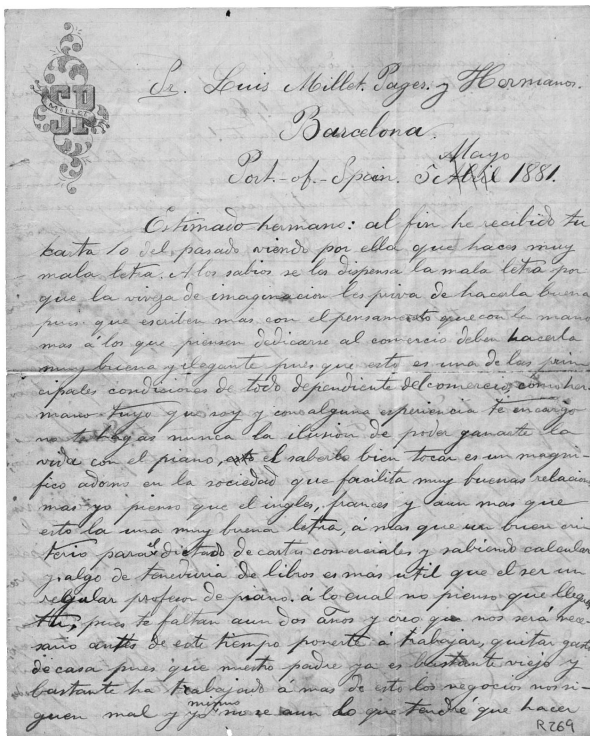 SP
MILLET
JR
Sr. Luis Millet. Pages. y Hermanos.
Barcelona.
Mayo
Port-of-Spain. 5 Abril 1881.
Estimado hermano: al fin he recibido tu
carta 10 del pasado viendo por ella que haces muy
mala letra. A los sabios se les dispensa la mala letra por
que la viveza de imaginacion les priva de hacerla buena
pues que escriben mas con el pensamiento que con la mano
mas á los que piensen dedicarse al comercio deben hacerla
muy buena y elegante pues que esto es una de las prin
cipales condiciones de todo dependiente del comercio, como her
mano tuyo que soy y con alguna esperiencia te encargo
no te hagas nunca la ilusion de poder ganarte la
vida con el piano, el saberlo bien tocar es un magni-
fico adorno en la sociedad que facilita muy buenas relacion
mas yo pienso que el ingles, frances y aun mas que
esto la una muy buena letra, á mas que un buen cri
terio para el dictado de cartas comerciales y sabiendo calcular
y algo de teneduria de libros es mas util que el ser un
regular profesor de piano. á lo cual no pienso que llegues
tu, pues te faltan aun dos años y creo que nos será nece-
sario antes de este tiempo ponerte á trabajar, quitar gasto
de casa pues que nuestro padre ya es bastante viejo y
bastante ha trabajado á mas de esto los negocios nos si-
guen mal y yo mismo no se aun lo que tendré que hacer
R269